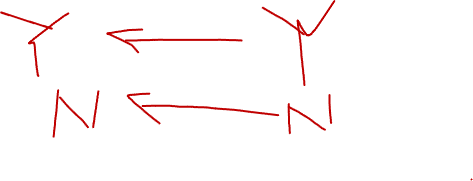 Y ← Y
N ← N